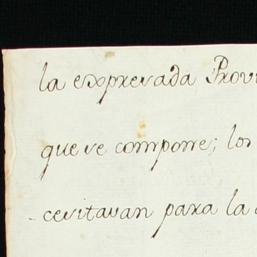 la expresada Provi
que se compone; los
cesitavan para la